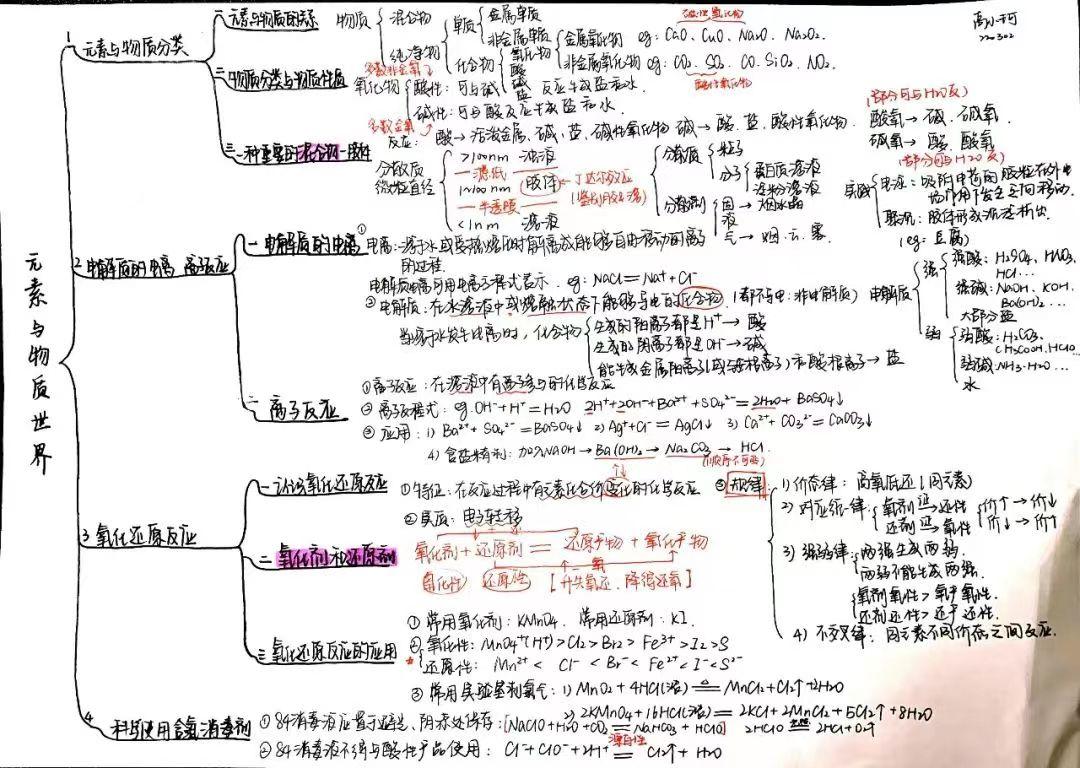 元素与物质世界
1 元素与物质分类
一 元素与物质的关系
物质
混合物
纯净物
单质
金属单质
非金属单质
化合物
氧化物
酸
碱
盐
碱性氧化物
金属氧化物 eg: CaO、CuO、Na2O、Na2O2.
非金属氧化物 eg: CO2、SO2、CO、SiO2、NO2.
酸性氧化物
二 物质分类与物质性质
多数非金氧
氧化物
酸性: 可与碱反应生成盐和水.
碱性: 可与酸反应生成盐和水.
多数金氧
反应: 酸→活泼金属、碱、盐、碱性氧化物 碱→酸、盐、酸性氧化物.
(部分可与H2O反)
酸氧→碱、碱氧.
碱氧→酸、酸氧
(部分可与H2O反)
三 一种重要的混合物—胶体
分散质微粒直径
>100nm 浊液
—滤纸
1~100nm (胶体) ←丁达尔效应
(鉴别胶&溶)
—半透膜
<1nm 溶液
分散质
粒子
分子
蛋白质溶液
淀粉溶液
分散剂
固→烟水晶
液
气→烟、云、雾
电泳: 吸附电荷的胶粒在外电场作用下发生定向移动.
聚沉: 胶体形成沉淀析出.
(eg: 豆腐)
2 电解质的电离 离子反应
一 电解质的电离
① 电离: 溶于水或受热熔融时解离成能够自由移动的离子的过程.
电解质电离可用电离方程式表示. eg: NaCl=Na⁺+Cl⁻
② 电解质: 在水溶液中或熔融状态下能够导电的化合物. (都不导电: 非电解质)
当溶于水发生电离时, 化合物
生成的阳离子都是H⁺→酸
生成的阴离子都是OH⁻→碱
能生成金属阳离子(或铵根离子)和酸根离子→盐
电解质
强
强酸: H2SO4、HNO3、HCl...
强碱: NaOH、KOH、Ba(OH)2...
大部分盐
弱
弱酸: H2CO3、CH3COOH、HClO...
弱碱: NH3·H2O...
水
二 离子反应
① 离子反应: 在溶液中有离子参与的化学反应
② 离子方程式: eg. OH⁻+H⁺=H2O 2H⁺+2OH⁻+Ba²⁺+SO4²⁻=2H2O+BaSO4↓
③ 应用: 1) Ba²⁺+SO4²⁻=BaSO4↓ 2) Ag⁺+Cl⁻=AgCl↓ 3) Ca²⁺+CO3²⁻=CaCO3↓
4) 食盐精制: 加入NaOH→Ba(OH)2→Na2CO3→HCl
(顺序不可变)
3 氧化还原反应
一 认识氧化还原反应
① 特征: 在反应过程中有元素化合价变化的化学反应
② 实质: 电子转移
二 氧化剂和还原剂
氧化剂+还原剂=还原产物+氧化产物
氧化性 还原性 [升失氧还、降得还氧]
③ 规律:
1) 价态律: 高氧低还(同元素)
2) 对应统一律
氧剂→还性
还剂→氧性
价↑→价↓
价↓→价↑
3) 强弱律:
两强生成两弱.
两弱不能生成两强.
氧剂氧性>氧产氧性.
还剂还性>还产还性.
4) 不交叉律: 同元素不同价态之间反应.
三 氧化还原反应的应用
① 常用氧化剂: KMnO4. 常用还原剂: KI.
② 氧化性: MnO4⁻(H⁺)>Cl2>Br2>Fe³⁺>I2>S
还原性: Mn²⁺<Cl⁻<Br⁻<Fe²⁺<I⁻<S²⁻
③ 常用实验室制氯气: 1) MnO2+4HCl(浓)≜MnCl2+Cl2↑+2H2O
2) 2KMnO4+16HCl(浓)=2KCl+2MnCl2+5Cl2↑+8H2O
4 科学使用含氯消毒剂
① 84消毒液应置于避光、阴凉处储存: [NaClO+H2O+CO2=NaHCO3+HClO] 2HClO=2HCl+O2↑
漂白性
② 84消毒液不得与酸性产品使用: Cl⁻+ClO⁻+2H⁺=Cl2↑+H2O
220302